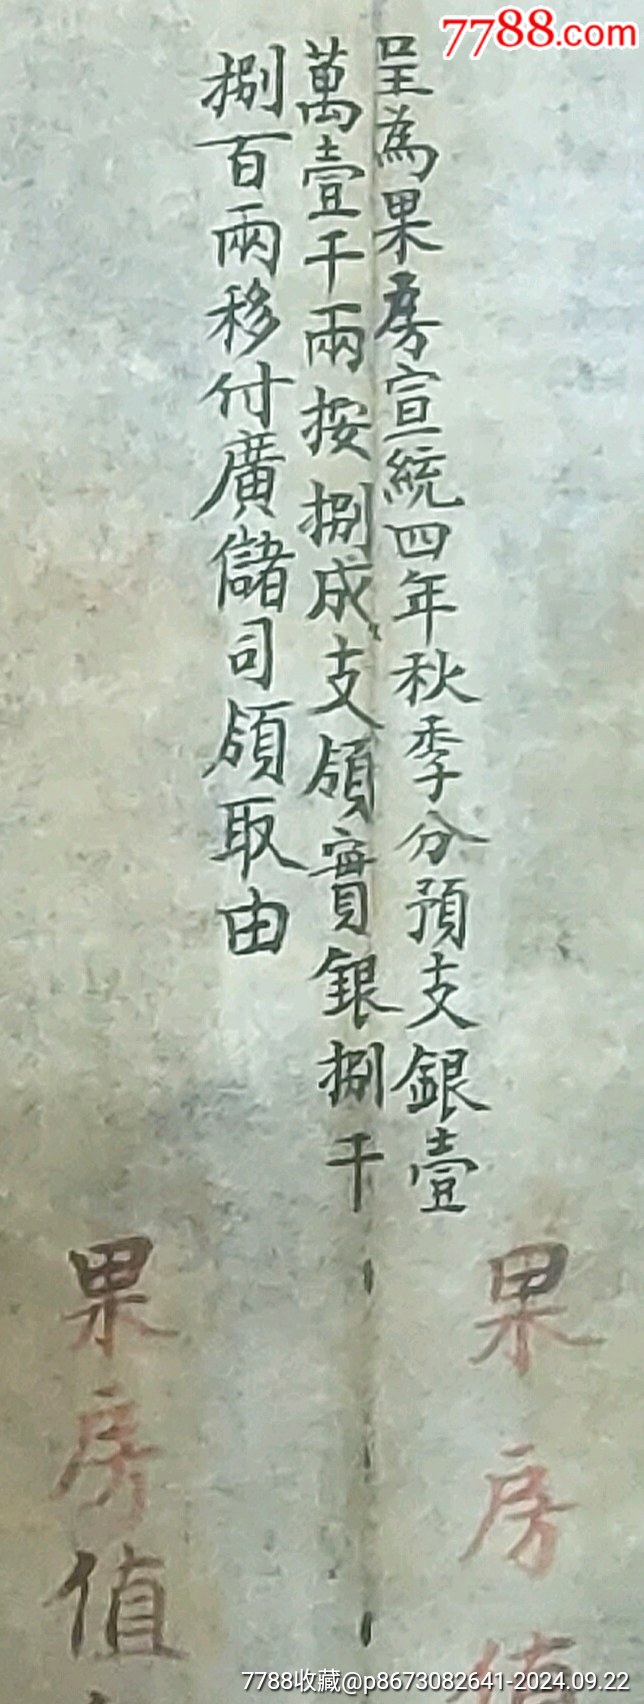 7788.com
呈為果房宣統四年秋季分預支銀壹
萬壹千兩按捌成支領實銀捌千
捌百兩移付廣儲司領取由
果房值
果房值
7788收藏@p8673082641-2024.09.22